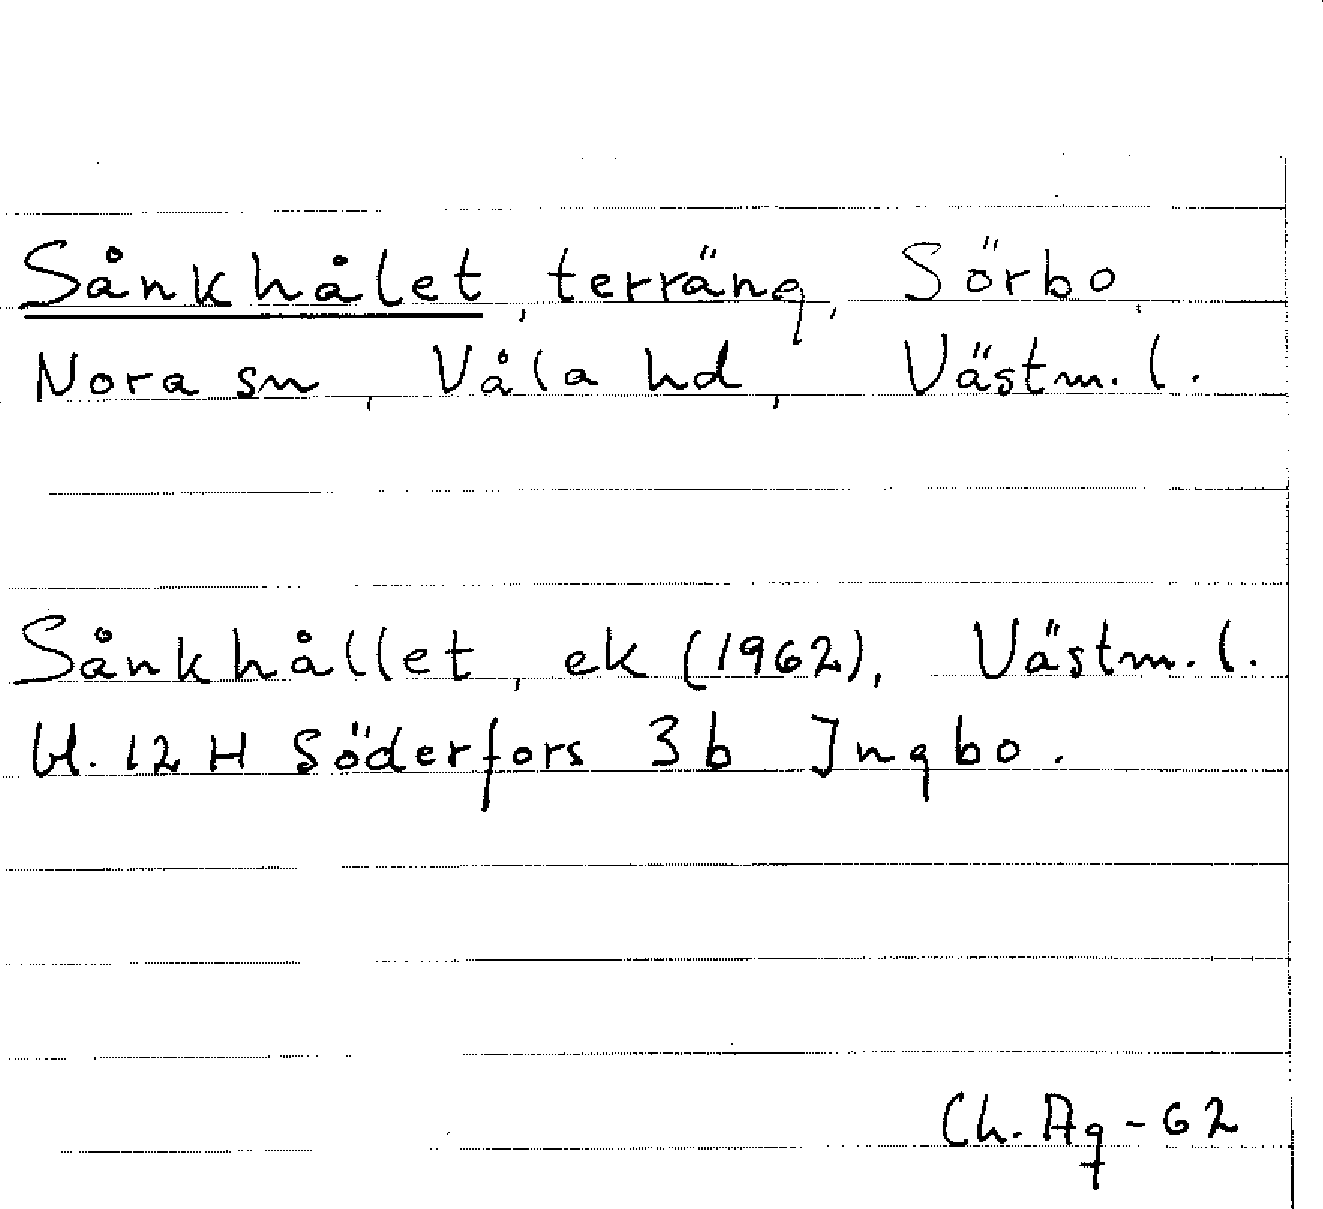 Sånkhålet, terräng, Sörbo,
Nora sn, Våla hd, Västm. l.
Sånkhållet, ek (1962), Västm. l.
bl. 12 H Söderfors 3b Ingbo.
Ch. Ag - 62